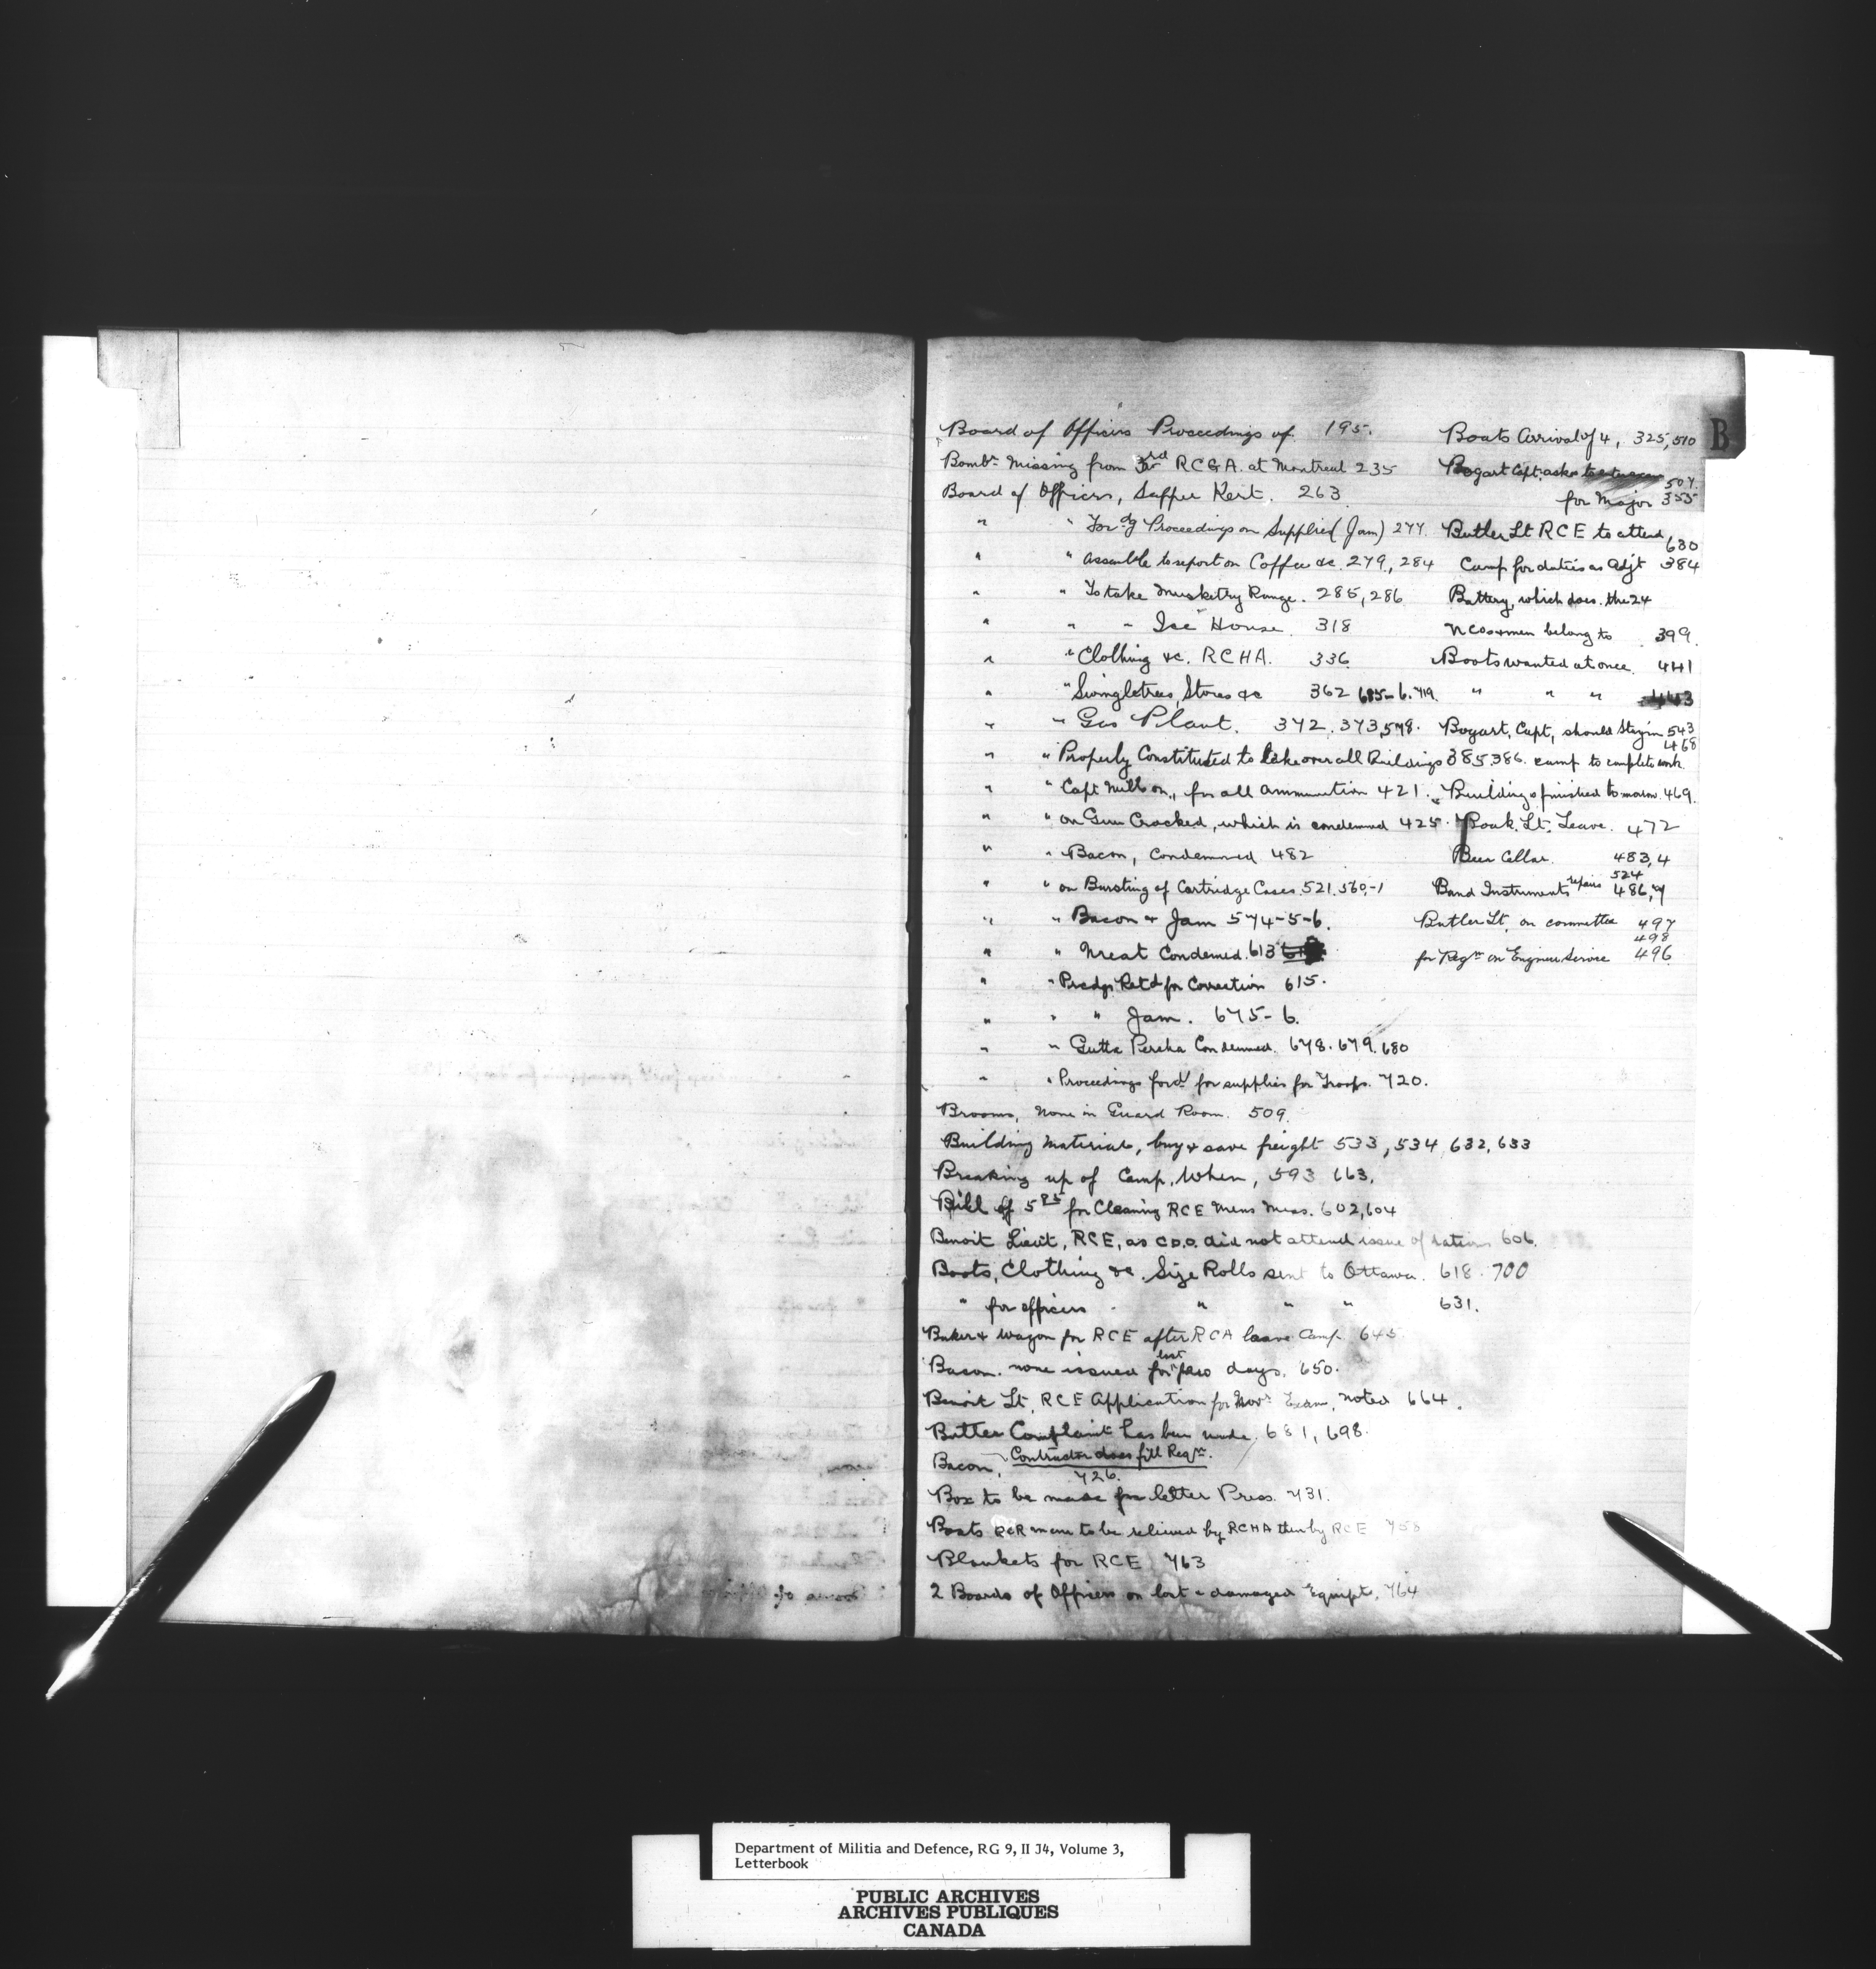 B
Board of Officers Proceedings of. 195.
Bombr Missing from 3rd RCGA. at Montreal 235
Board of Officers, Sapper Kert. 263
" " For'dg Proceedings on Supplies (Jam) 277.
" " assemble to report on Coffee &c. 279, 284
" " To take Musketry Range. 285, 286
" " " Ice House. 318
" " Clothing &c. RCHA. 336
" " Swingletrees, Stores &c 362 685-6. 719.
" " Gas Plant. 372. 373, 578.
" " Properly Constituted to take over all Buildings 385, 386.
" " Capt on, for all ammunition 421.
" " on Gun Cracked, which is condemned 425.
" " Bacon, Condemned 482
" " on Bursting of Cartridge Cases. 521. 560,-1
" " Bacon & Jam 574-5-6.
" " Meat Condemned. 613
" " Prcdgs Ret'd for Correction 615.
" " " Jam. 675-6.
" " Gutta Percha Condemned. 678. 679. 680
" " Proceedings ford' for supplies for Troops. 720.
Brooms, none in Guard Room. 509.
Building Material, buy & save freight 533, 534, 632, 633
Breaking up of Camp, When, 593 663.
Bill of 5 85 for Cleaning RCE Mens Mess. 602, 604
Benoit Lieut, RCE, as C.D.O. did not attend issue of rations 606.
Boots, Clothing &c. Size Rolls sent to Ottawa. 618. 700
" for officers " " " 631.
Baker & Wagon for RCE after RCA leave Camp 645
Bacon. none issued for last few days. 650.
Benoit Lt, RCE Application for Novr Exam, noted 664.
Butter Complaint has been made. 681, 698.
Bacon, Contractor does fill Reqn.
726.
Box to be made for letter Press. 731.
Boats RCR men to be relieved by RCHA then by RCE 758
Blankets for RCE 763
2 Boards of Officers on lost & damaged Equipt. 764
Boats Arrival of 4, 325, 510
Bogart Capt. asks
507.
for Major 355
Butler Lt RCE to attend
630
Camp for duties as Adjt 384
Battery, which does the 24
NCOs & men belong to 399.
Boots wanted at once 441
" " " 443
Bogart, Capt, should Stay in 543
468
camp to complete work.
Buildings finished tomorrow. 469.
Boak. Lt. Leave. 472
Beer Cellar. 483, 4
524
Band Instruments repairs 486, 7
Butler Lt, on committee 497
498
for Regn on Engineer Service 496
Department of Militia and Defence, RG 9, II J4, Volume 3,
Letterbook
PUBLIC ARCHIVES
ARCHIVES PUBLIQUES
CANADA